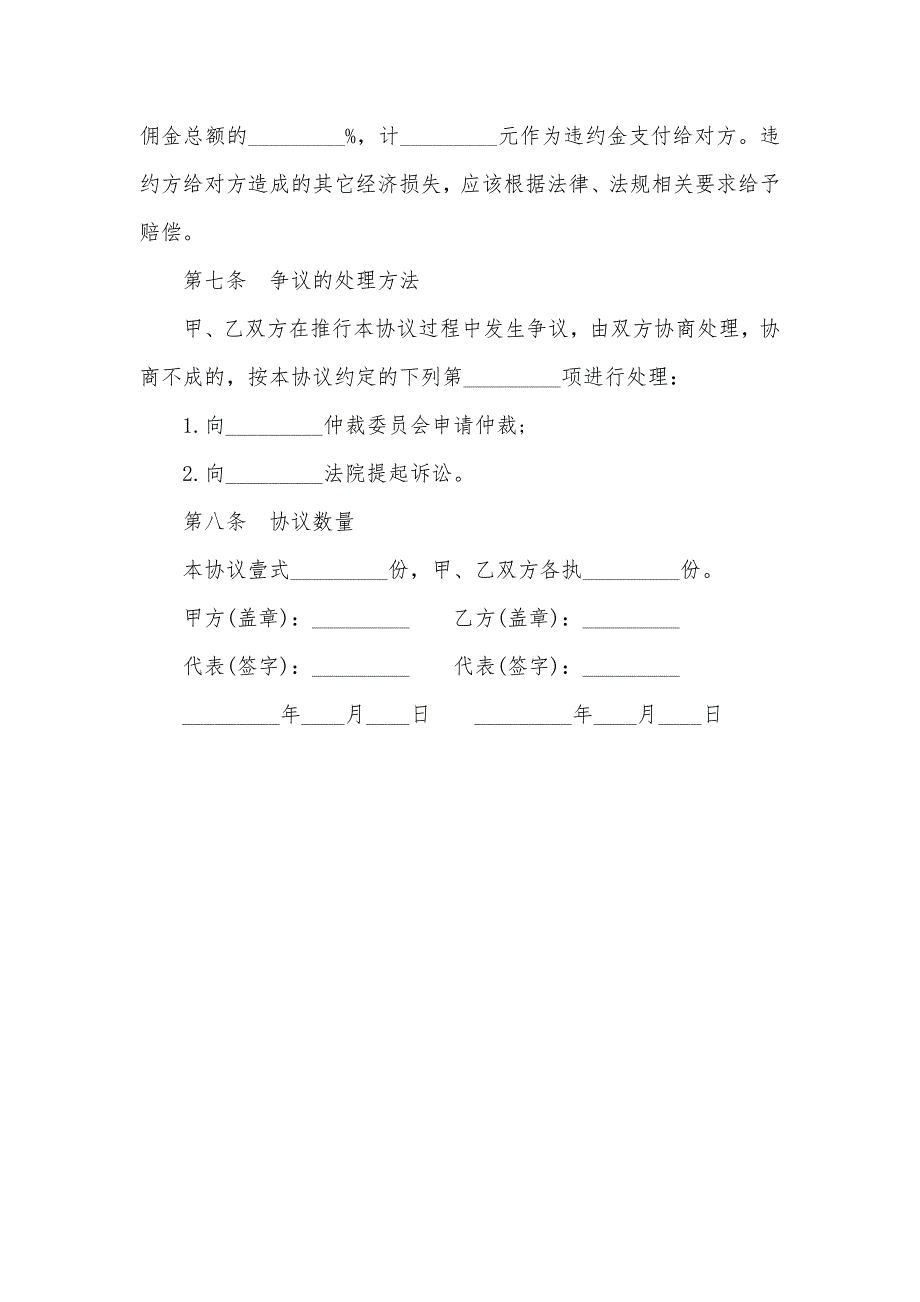 佣金总额的_________%，计_________元作为违约金支付给对方。违
约方给对方造成的其它经济损失，应该根据法律、法规相关要求给予
赔偿。
第七条　争议的处理方法
甲、乙双方在推行本协议过程中发生争议，由双方协商处理，协
商不成的，按本协议约定的下列第_________项进行处理：
1.向_________仲裁委员会申请仲裁；
2.向_________法院提起诉讼。
第八条　协议数量
本协议壹式_________份，甲、乙双方各执_________份。
甲方(盖章)：_________　　乙方(盖章)：_________
代表(签字)：_________　　代表(签字)：_________
_________年____月____日　　_________年____月____日